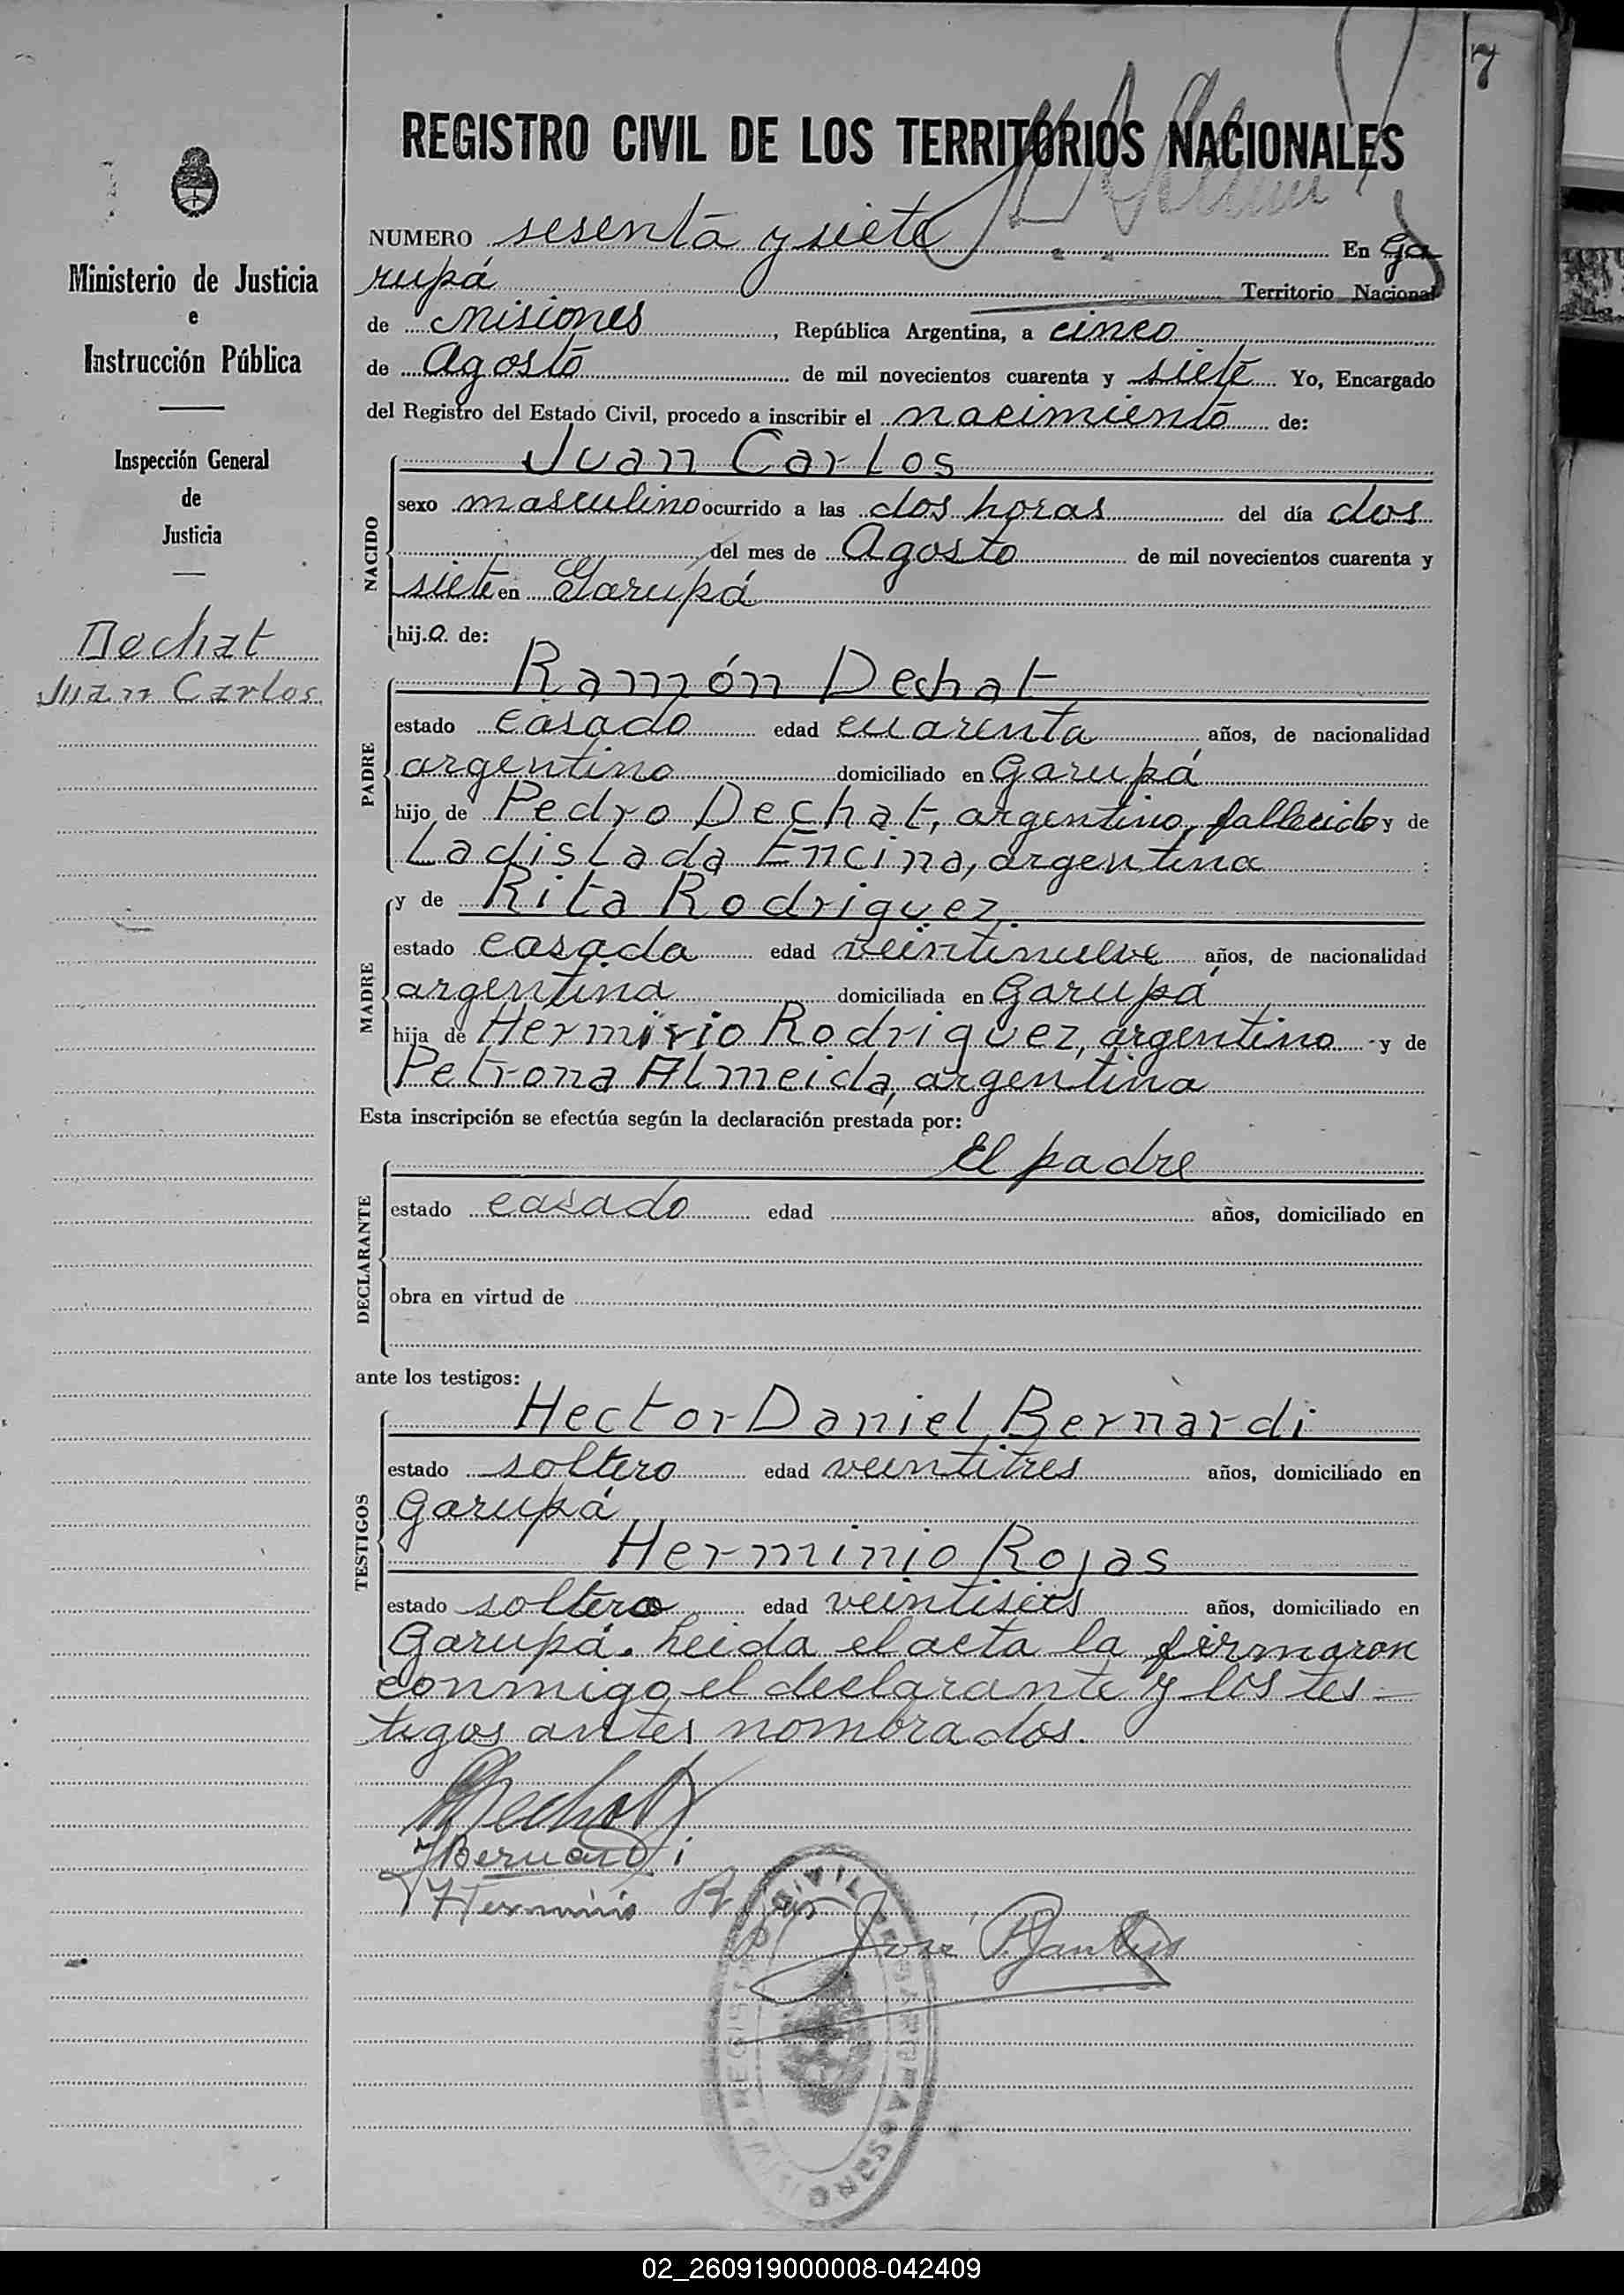 7
REGISTRO CIVIL DE LOS TERRITORIOS NACIONALES
Ministerio de Justicia
e
Instrucción Pública
Inspección General
de
Justicia
Dechat
Juan Carlos
NUMERO sesenta y siete En Ga
rupá Territorio Nacional
de Misiones, República Argentina, a cinco
de Agosto de mil novecientos cuarenta y siete Yo, Encargado
del Registro del Estado Civil, procedo a inscribir el nacimiento de:
NACIDO
Juan Carlos
sexo masculino ocurrido a las dos horas del día dos
del mes de Agosto de mil novecientos cuarenta y
siete en Garupá
hijo de:
PADRE
Ramón Dechat
estado casado edad cuarenta años, de nacionalidad
argentino domiciliado en Garupá
hijo de Pedro Dechat, argentino, fallecido y de
Ladislada Encina, argentina
MADRE
y de Rita Rodriguez
estado casada edad veintinueve años, de nacionalidad
argentina domiciliada en Garupá
hija de Rodriguez, argentino y de
Petrona Almeida, argentina
Esta inscripción se efectúa según la declaración prestada por:
DECLARANTE
El padre
estado casado edad años, domiciliado en
obra en virtud de
ante los testigos:
TESTIGOS
Hector Daniel Bernardi
estado soltero edad veintitres años, domiciliado en
Garupá
Herminio Rojas
estado soltero edad veintiseis años, domiciliado en
Garupá. Leida el acta la firmaron
conmigo el declarante y los tes-
tigos antes nombrados.
Dechat
Bernardi
Herminio Rojas
José
REGISTRO CIVIL
02_260919000008-042409